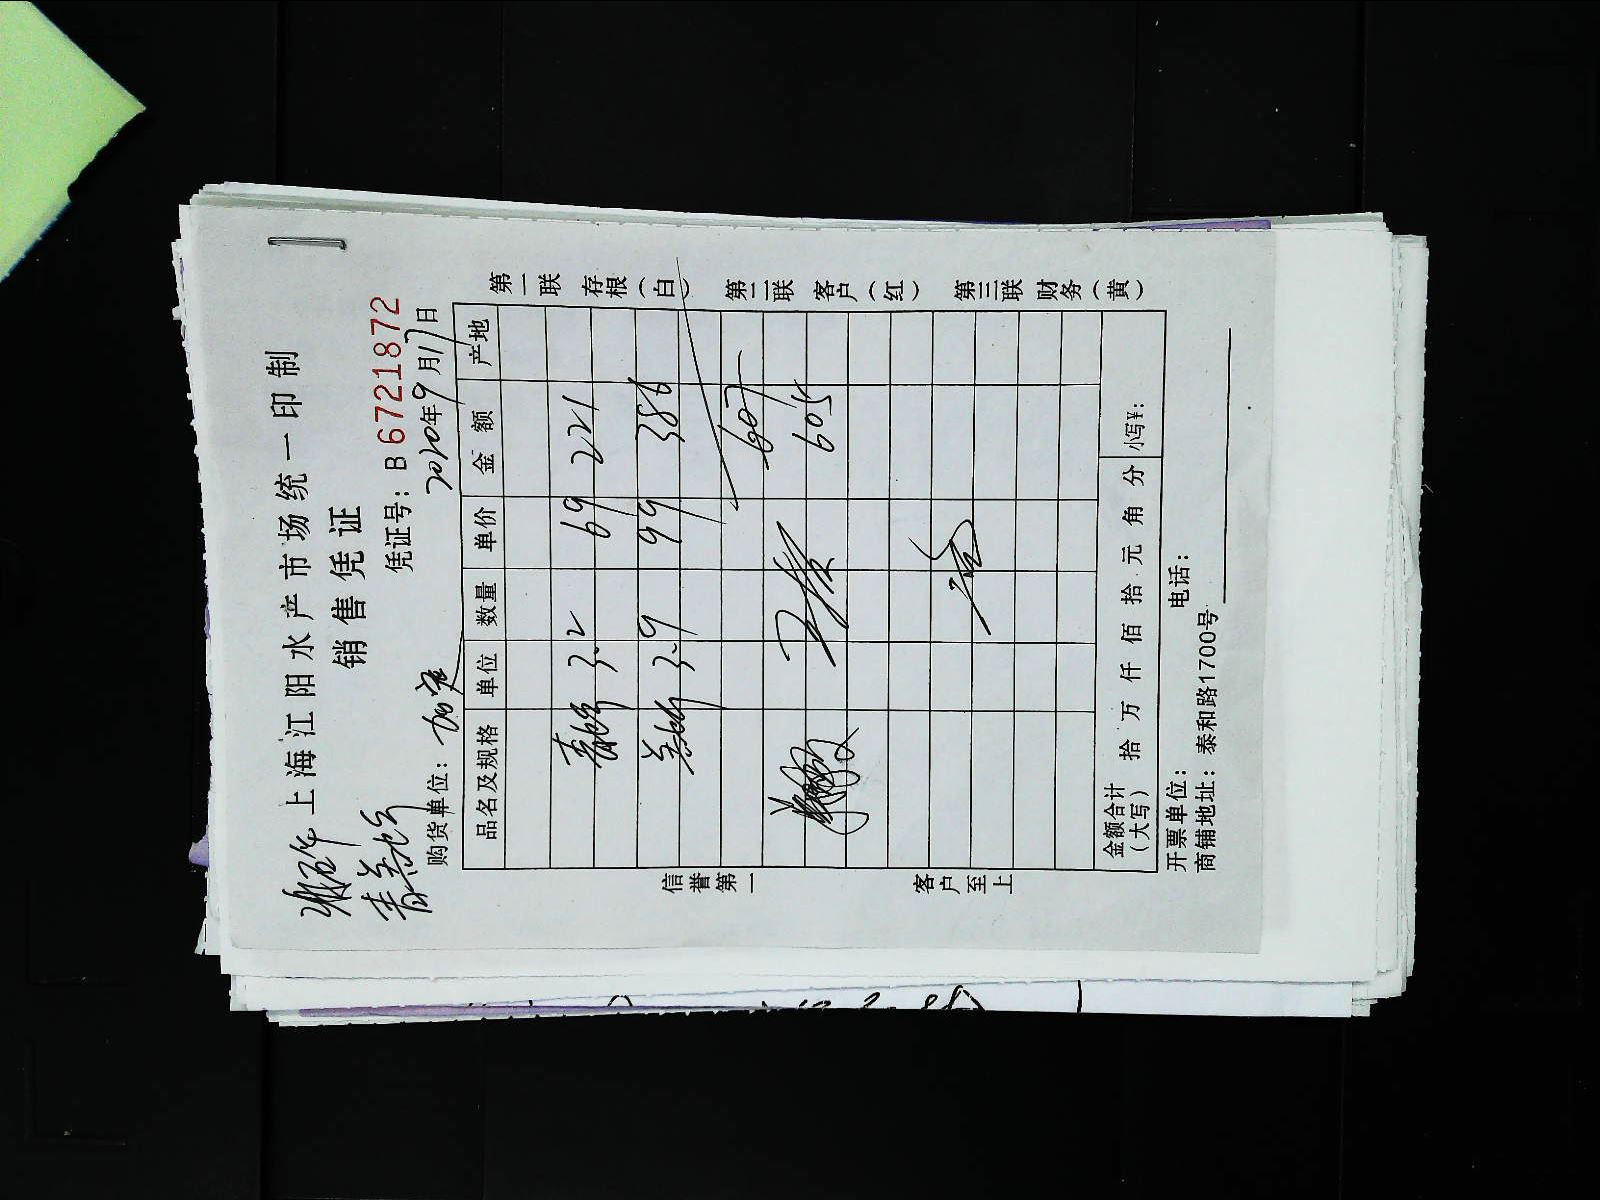 上海江阳水产市场统一印制
销售凭证
凭证号：B 6721872
购货单位：
2020年9月17日
品名及规格 单位 数量 单价 金额 产地
3.2 69 221
3.9 99 386
607
605
金额合计（大写） 拾 万 仟 佰 拾 元 角 分 小写¥：
开票单位： 电话：
商铺地址：泰和路1700号
信誉第一 客户至上
第一联 存根（白） 第二联 客户（红） 第三联 财务（黄）